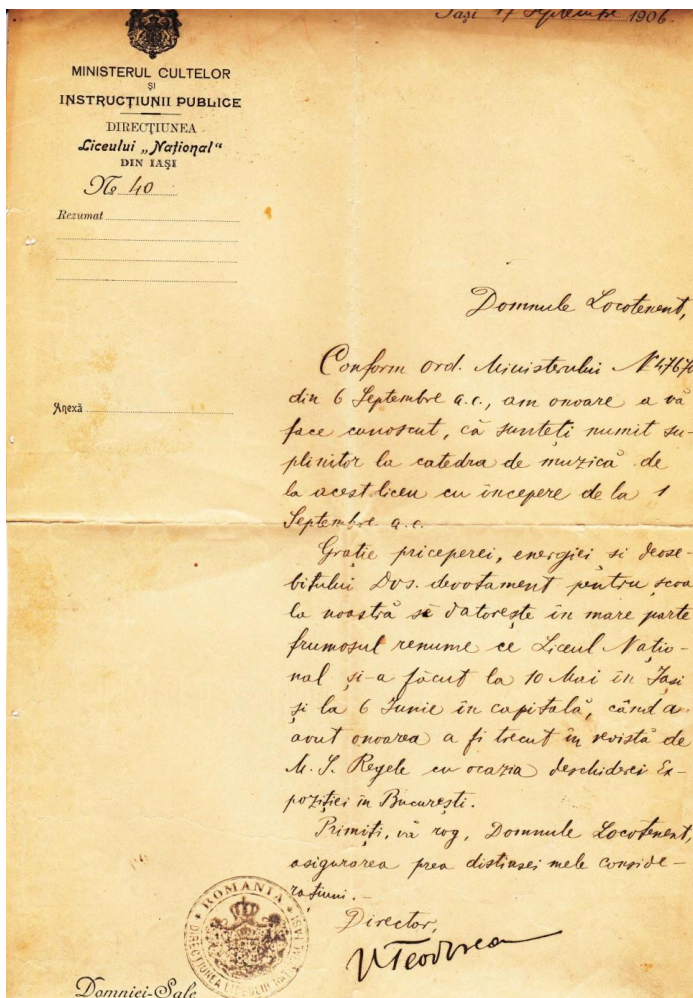 Iași 17 Septembre 1906.
MINISTERUL CULTELOR
ȘI
INSTRUCȚIUNII PUBLICE
DIRECȚIUNEA
Liceului „Național“
DIN IAȘI
No 40
Rezumat
Anexă
Domnule Locotenent,
Conform ord. Ministerului No 47670
din 6 Septembre a.c., am onoare a vă
face cunoscut, că sunteți numit su-
plinitor la catedra de muzică de
la acest liceu cu începere de la 1
Septembre a.c.
Grație priceperei, energiei si deose-
bitului Dvs. devotament pentru școa
la noastră se datorește în mare parte
frumosul renume ce Liceul Națio-
nal și-a făcut la 10 Mai în Iași
și la 6 Iunie în capitală, când a
avut onoarea a fi trecut în revistă de
M. S. Regele cu ocazia deschiderei Ex-
poziției in București.
Primiți, vă rog, Domnule Locotenent,
asigurarea prea distinsei mele conside-
rațiuni.-
Director,
V Teodorean
ROMANIA
DIRECȚIUNEA LICEULUI NAȚIONAL IAȘI
Domniei-Sale